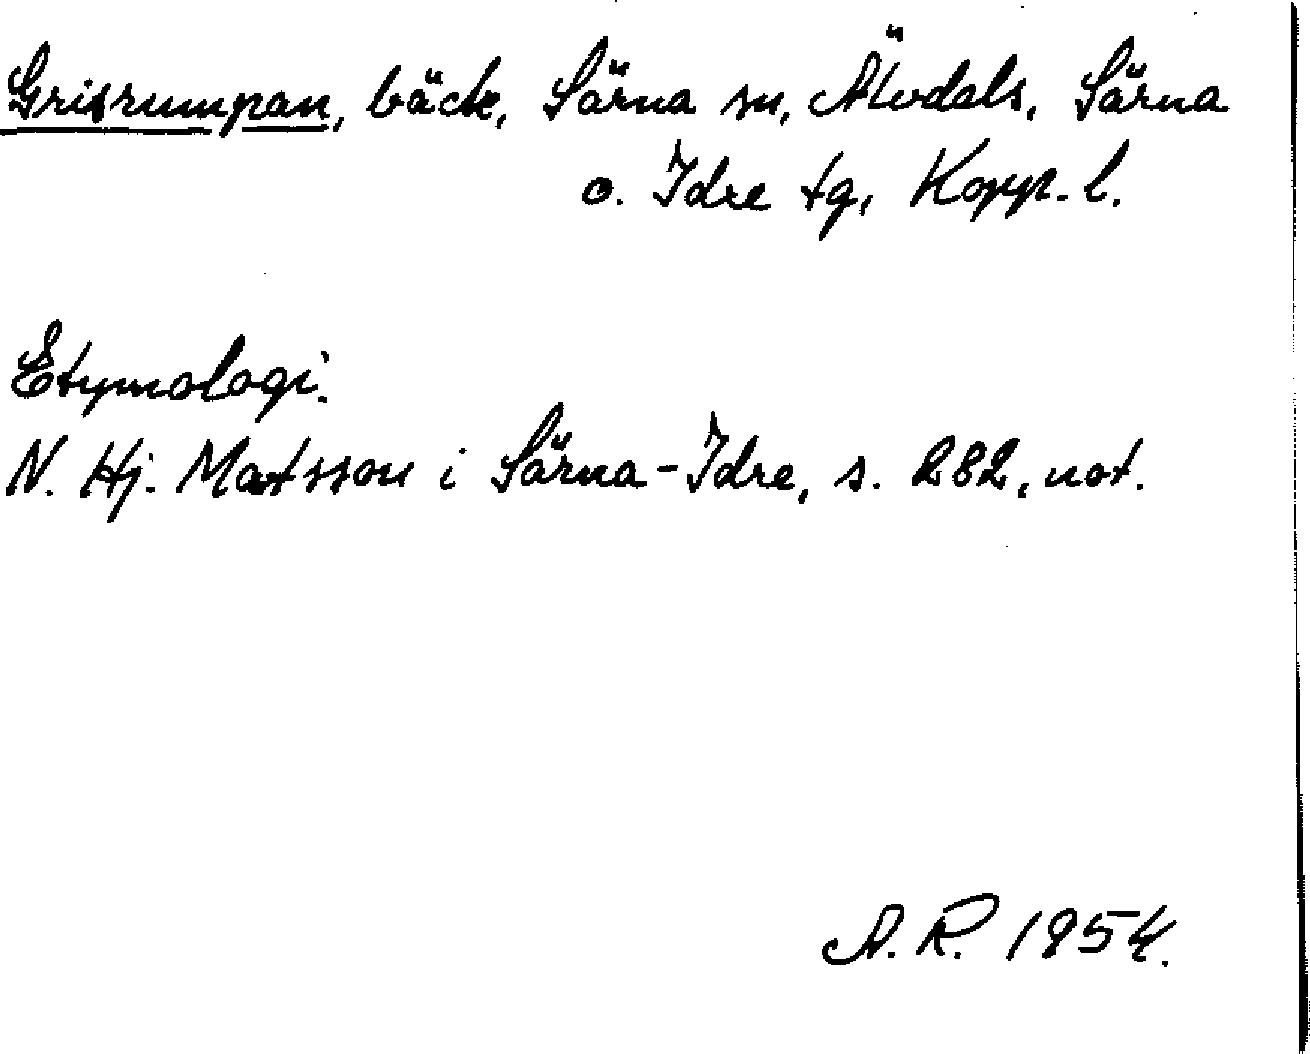 Grisrumpan, bäck, Särna sn, Älvdals, Särna
o. Idre tg, Kopp. l.
Etymologi.
N. Hj. Matsson i Särna-Idre, s. 282, not.
A. R. 1954.